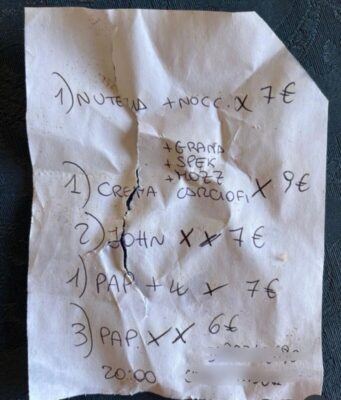 1) NUTELLA +NOCC. X 7€
+GRANA
+SPEK
+MOZZ
1) CREMA CARCIOFI X 9€
2) JOHN X X 7€
1) PAP + 4 X 7€
3) PAP X X 6€
20:00